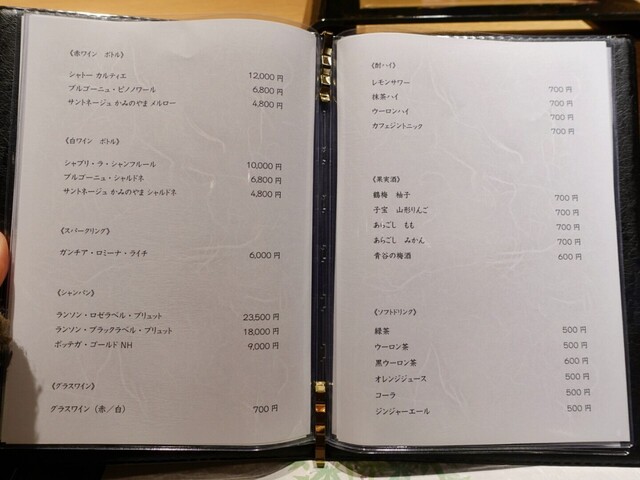 《赤ワイン ボトル》
シャトー カルティエ 12,000円
ブルゴーニュ・ピノノワール 6,800円
サントネージュ かみのやま メルロー 4,800円
《白ワイン ボトル》
シャブリ・ラ・シャンフルール 10,000円
ブルゴーニュ・シャルドネ 6,800円
サントネージュ かみのやま シャルドネ 4,800円
《スパークリング》
ガンチア・ロミーナ・ライチ 6,000円
《シャンパン》
ランソン・ロゼラベル・ブリュット 23,500円
ランソン・ブラックラベル・ブリュット 18,000円
ボッテガ・ゴールド NH 9,000円
《グラスワイン》
グラスワイン（赤／白） 700円
《酎ハイ》
レモンサワー 700円
抹茶ハイ 700円
ウーロンハイ 700円
カフェジントニック 700円
《果実酒》
鶴梅 柚子 700円
子宝 山形りんご 700円
あらごし もも 700円
あらごし みかん 700円
青谷の梅酒 600円
《ソフトドリンク》
緑茶 500円
ウーロン茶 500円
黒ウーロン茶 600円
オレンジジュース 500円
コーラ 500円
ジンジャーエール 500円